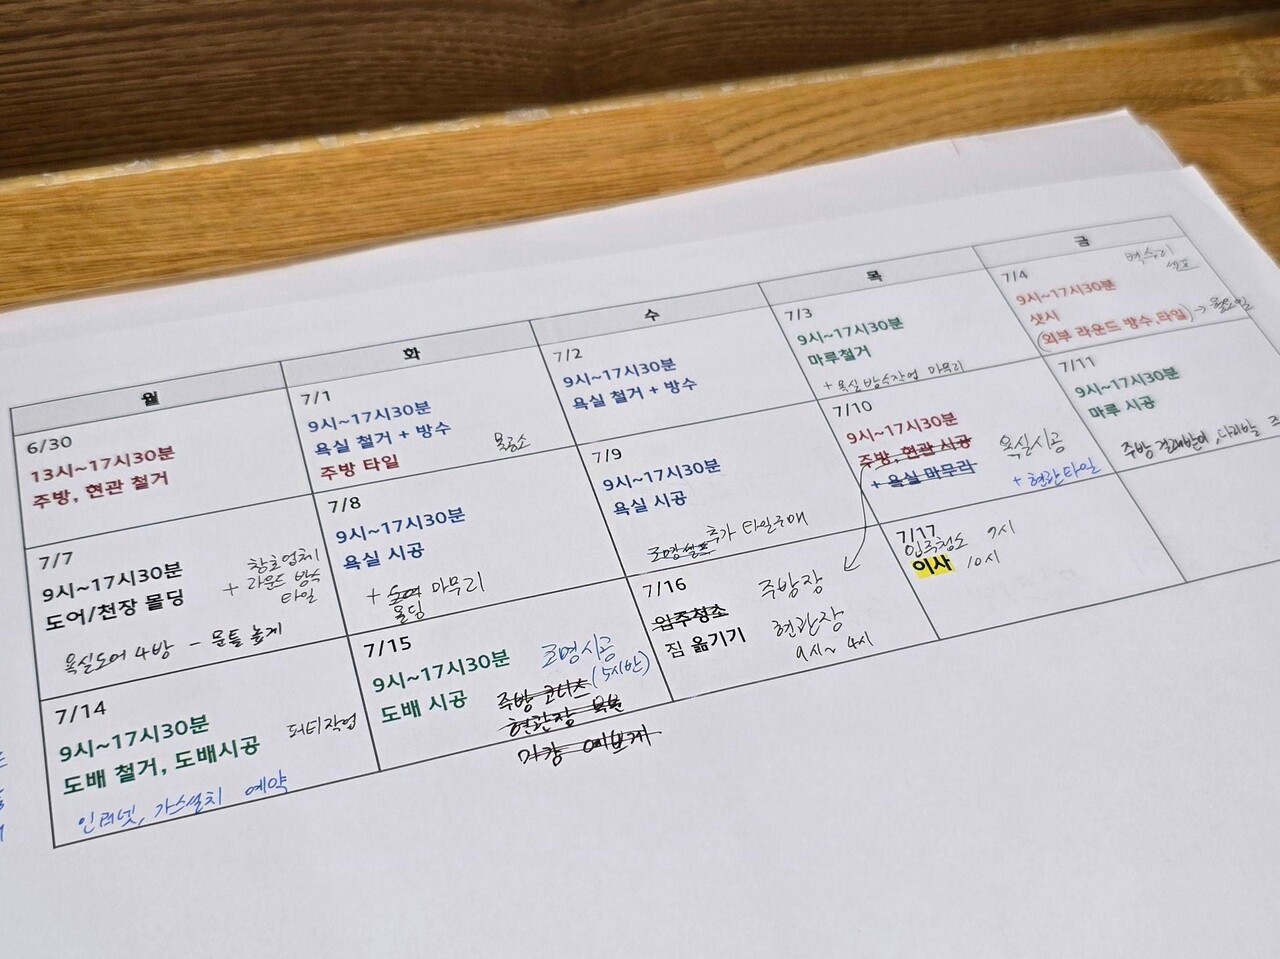 월
화
수
목
금
6/30
13시~17시30분
주방, 현관 철거
7/1
9시~17시30분
욕실 철거 + 방수
주방 타일
7/2
9시~17시30분
욕실 철거 + 방수
7/3
9시~17시30분
마루철거
+ 욕실 방수작업 마무리
7/4
9시~17시30분
샷시
(외부 라운드 방수,타일) → 월요일
7/7
9시~17시30분
도어/천장 몰딩
창호업체
+ 라운드 방수
타일
욕실도어 4방 - 문틀 높게
7/8
9시~17시30분
욕실 시공
+ 마무리
몰딩
7/9
9시~17시30분
욕실 시공
추가 타일구매
7/10
9시~17시30분
주방, 현관 시공
+ 욕실 마무리
욕실시공
+ 현관타일
7/11
9시~17시30분
마루 시공
주방 걸레받이, 다리발
7/14
9시~17시30분
도배 철거, 도배시공
퍼티작업
인터넷, 가스설치 예약
7/15
9시~17시30분
도배 시공
조명시공
(5시반)
현관장
7/16
입주청소
짐 옮기기
주방장
현관장
9시~ 4시
7/17
입주청소 9시
이사 10시